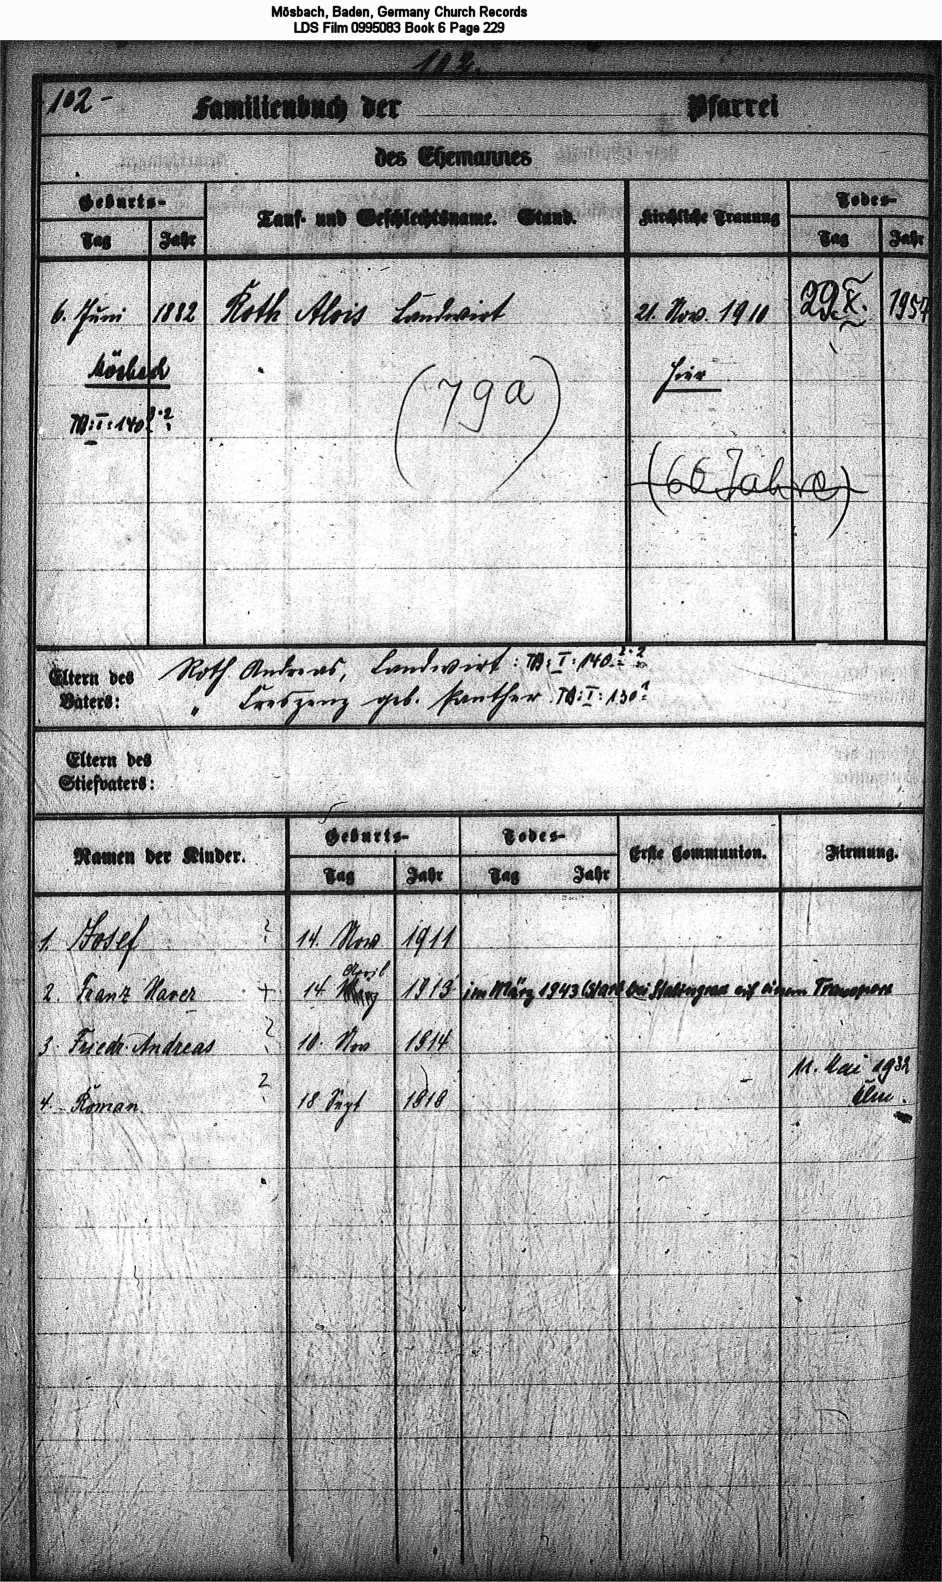 Mösbach, Baden, Germany Church Records
LDS Film 0995083 Book 6 Page 229
102.
102-
Familienbuch der Pfarrei
des Ehemannes
Geburts-
Tag Jahr
Tauf- und Geschlechtsname. Stand.
Kirchliche Trauung
Todes-
Tag Jahr
6. Juni 1882 Roth Alois Landwirt 21. Nov. 1910 29. X. 1957
Mösbach hier
(79a)
(66 Jahre)
Eltern des
Vaters:
Roth Andreas, Landwirt: I: 140
" Creszenz geb. Panther I: 130
Eltern des
Stiefvaters:
Namen der Kinder.
Geburts-
Tag Jahr
Todes-
Tag Jahr
Erste Communion.
Firmung.
1. Josef 14. Nov 1911
April
2. Franz Xaver + 14. März 1913 im März 1943 bei Stalingrad auf einem Transport
3. Friedr. Andreas 10. Nov 1914
11. Mai 1932
4. Roman 18 Sept 1918 Ulm.